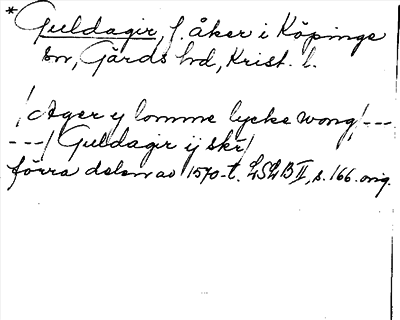 * Guldagir, f. åker i Köpinge
sn, Gärds hd, Krist. l.
/Ager y lomme lycke wong/ ---
---/ Guldagir ij skr/
förra delen av 1570-t. LSLB II, s. 166. orig.